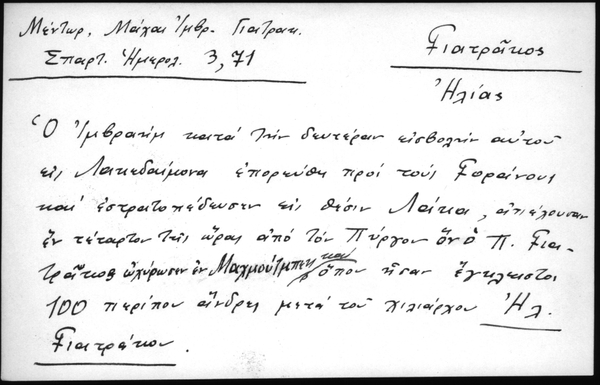 Μέντωρ, Μάχαι Ἰμβρ. Γιατρακ.
Σπαρτ. Ἡμερολ. 3, 71
Γιατρᾶκος
Ἠλίας
Ὁ Ἰμβραὴμ κατὰ τὴν δευτέραν εἰσβολὴν αὐτοῦ
εἰς Λακεδαίμονα ἐπορεύθη πρὸς τοὺς Γοράνους
καὶ ἐστρατοπέδευσεν εἰς θέσιν Λάκκα, ἀπέχουσαν
ἓν τέταρτον τῆς ὥρας ἀπὸ τὸν Πύργον ὃν ὁ Π. Για-
τρᾶκος ὠχύρωσεν ἐν Μαχμούτμπεη καὶ ὅπου ἦσαν ἔγκλειστοι
100 περίπου ἄνδρες μετὰ τοῦ χιλιάρχου Ἠλ.
Γιατράκου.